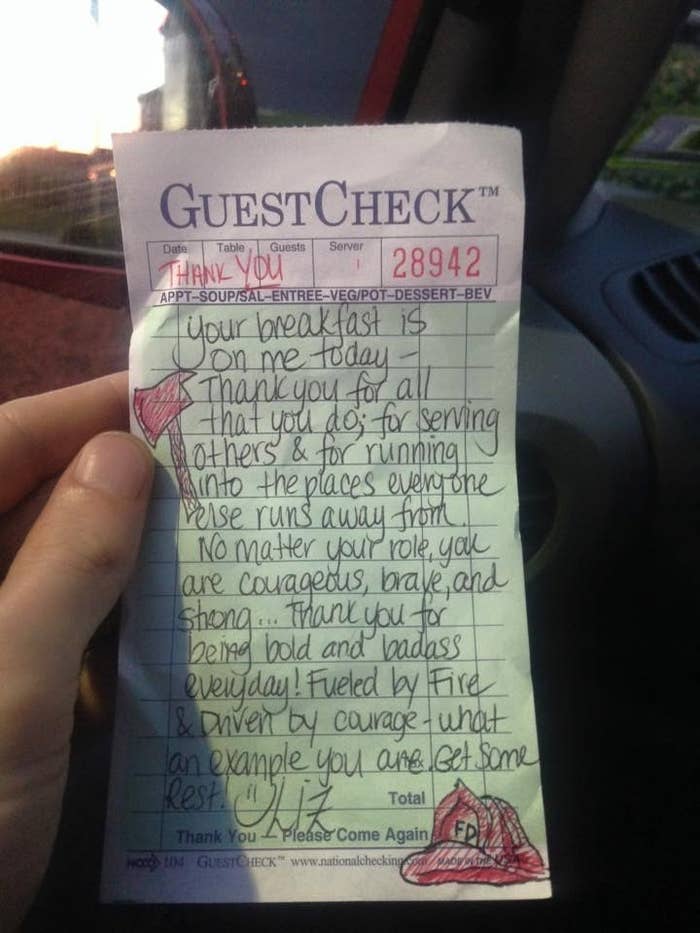 GUESTCHECK™
Date Table Guests Server
THANK YOU 28942
APPT-SOUP/SAL-ENTREE-VEG/POT-DESSERT-BEV
your breakfast is
on me today -
Thank you for all
that you do; for serving
others & for running
into the places everyone
else runs away from.
No matter your role, you
are courageous, brave, and
strong... Thank you for
being bold and badass
everyday! Fueled by Fire
& Driven by courage - what
an example you are. Get Some
Rest! Liz
Total
FD
Thank You - Please Come Again
NCCO 104 GUESTCHECK™ www.nationalchecking.com MADE IN THE USA